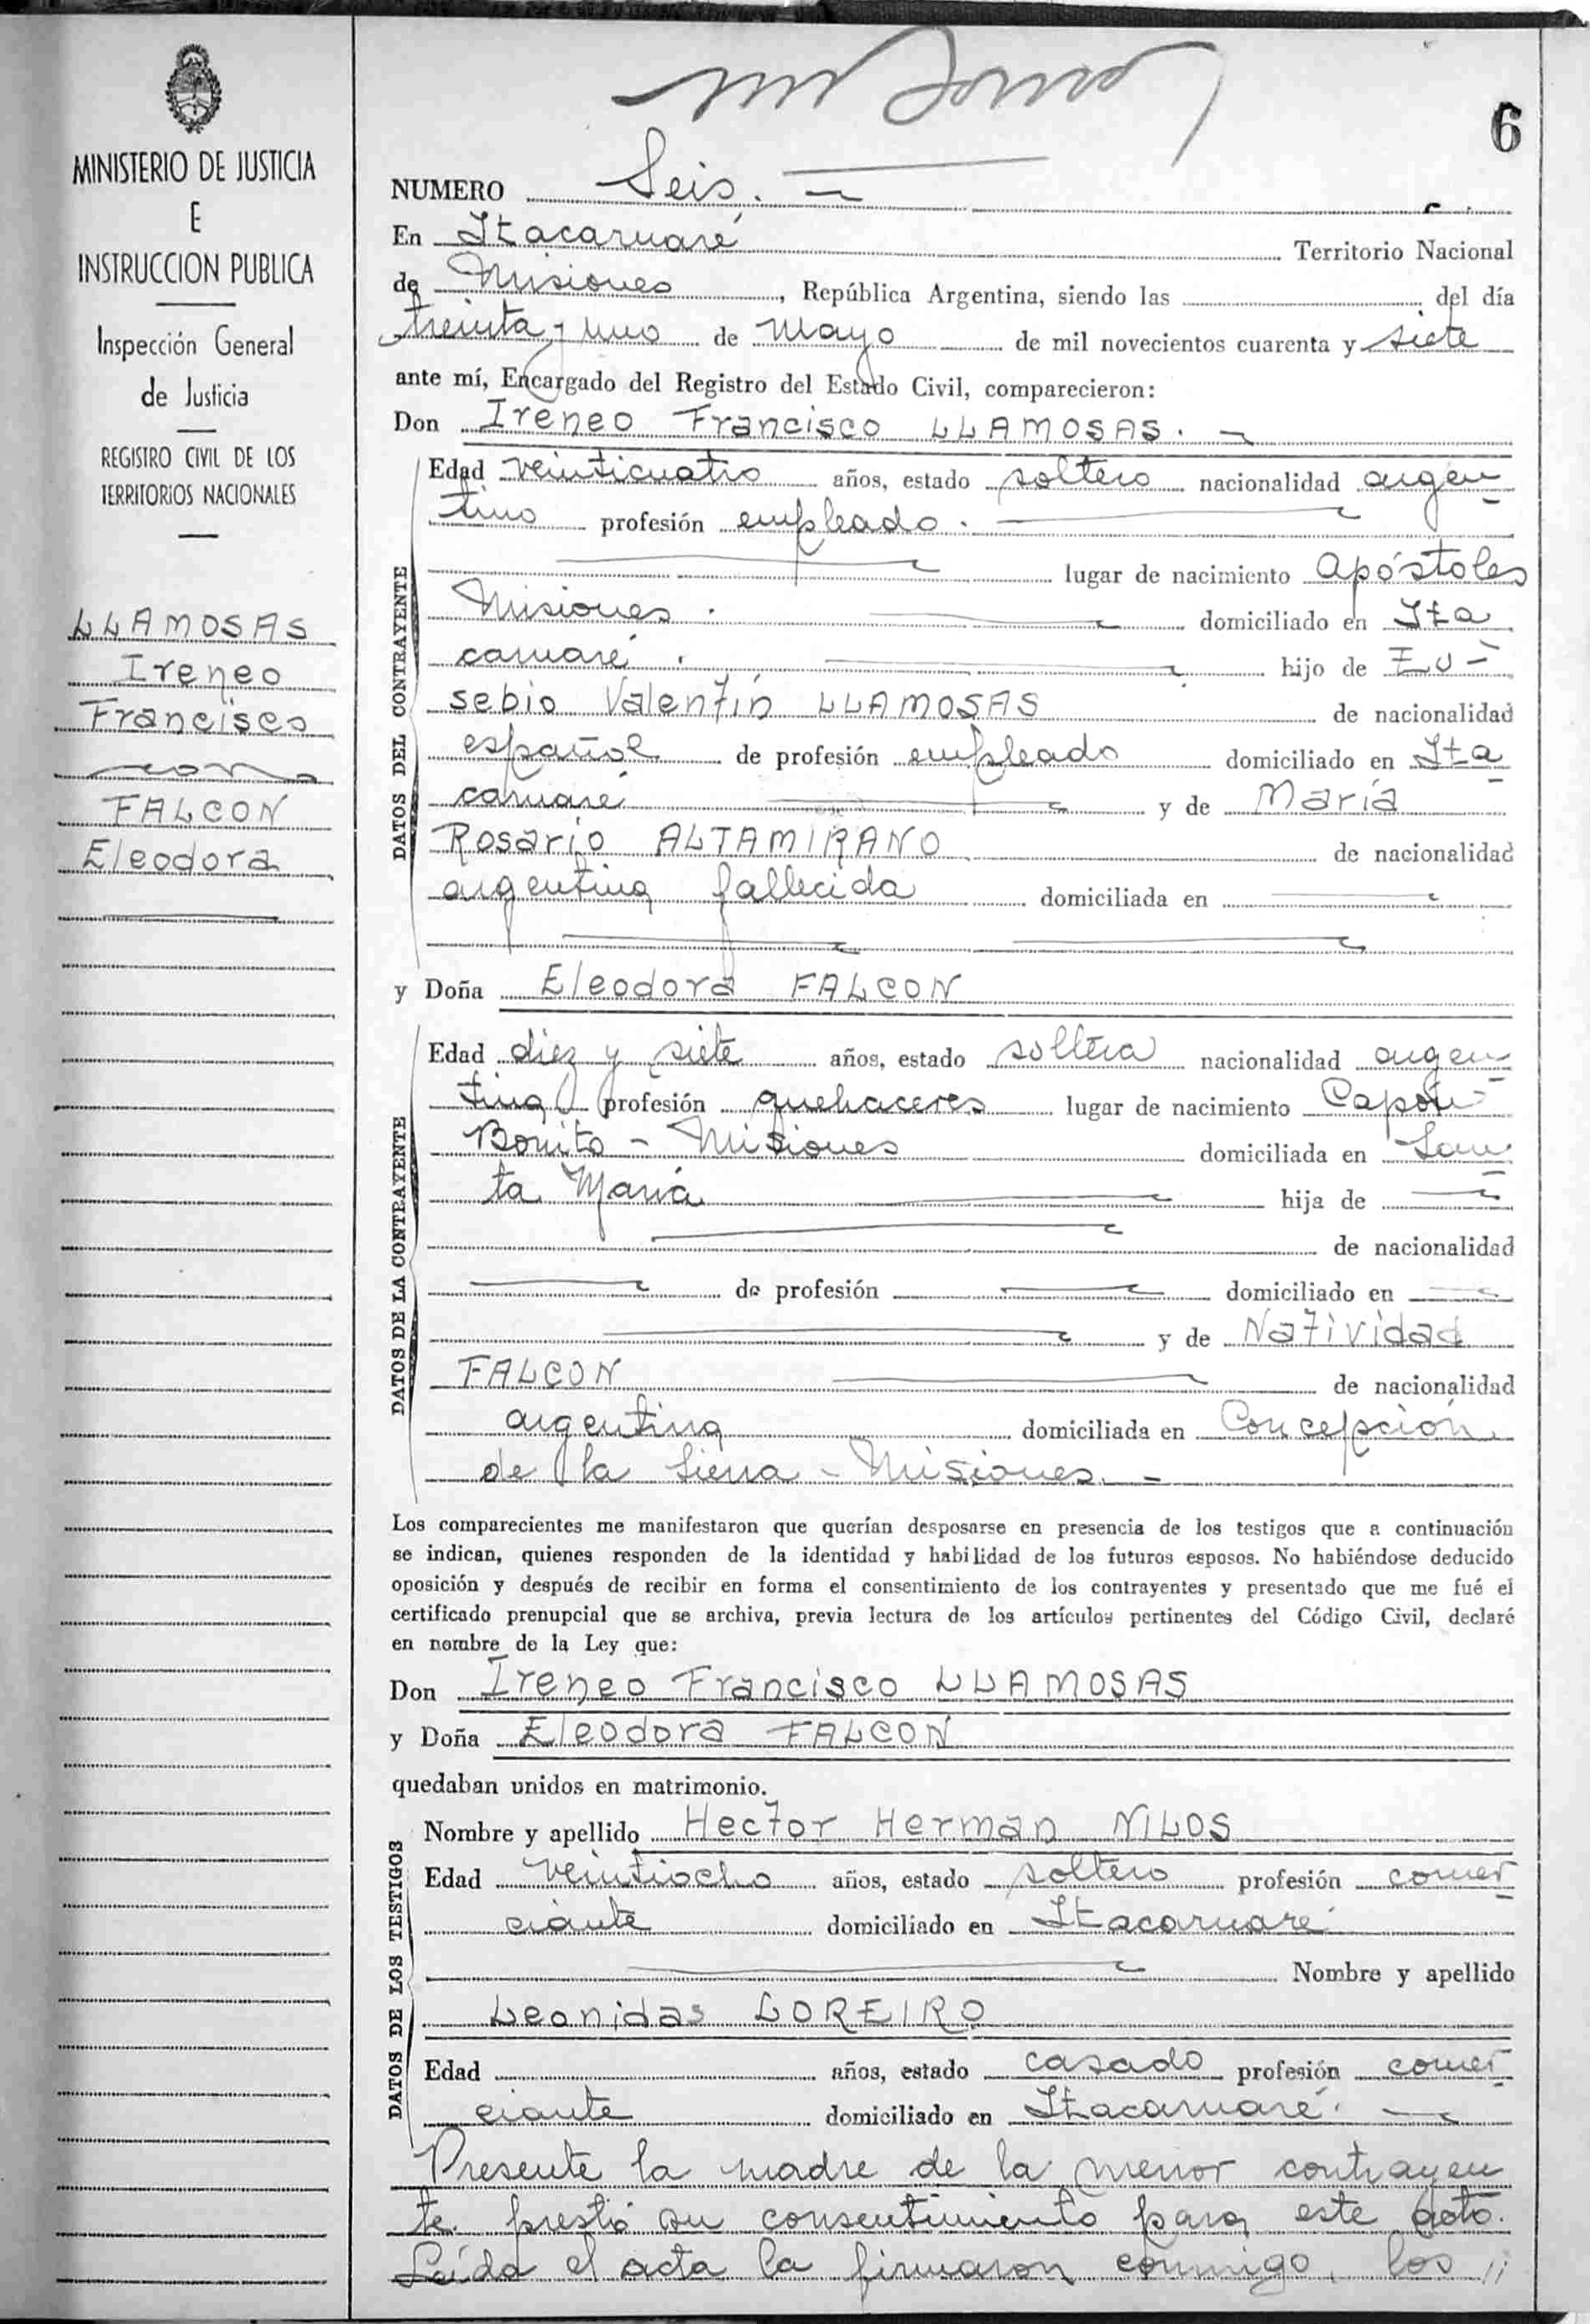 6
MINISTERIO DE JUSTICIA
E
INSTRUCCION PUBLICA
Inspección General
de Justicia
REGISTRO CIVIL DE LOS
TERRITORIOS NACIONALES
LLAMOSAS
Ireneo
Francisco
con
FALCON
Eleodora
NUMERO Seis.
En Itacaruaré Territorio Nacional
de Misiones, República Argentina, siendo las del día
treinta y uno de Mayo de mil novecientos cuarenta y siete
ante mí, Encargado del Registro del Estado Civil, comparecieron:
Don Ireneo Francisco LLAMOSAS.
DATOS DEL CONTRAYENTE
Edad veinticuatro años, estado soltero nacionalidad argen
tino profesión empleado.
lugar de nacimiento Apóstoles
Misiones. domiciliado en Ita
caruaré. hijo de Eu-
sebio Valentín LLAMOSAS de nacionalidad
español de profesión empleado domiciliado en Ita
caruaré y de María
Rosario ALTAMIRANO de nacionalidad
argentina fallecida domiciliada en
y Doña Eleodora FALCON
DATOS DE LA CONTRAYENTE
Edad diez y siete años, estado soltera nacionalidad argen
tina profesión quehaceres lugar de nacimiento Capón
Bonito - Misiones domiciliada en San
ta María hija de
de nacionalidad
de profesión domiciliado en
y de Natividad
FALCON de nacionalidad
argentina domiciliada en Concepción
de la Sierra - Misiones.-
Los comparecientes me manifestaron que querían desposarse en presencia de los testigos que a continuación
se indican, quienes responden de la identidad y habilidad de los futuros esposos. No habiéndose deducido
oposición y después de recibir en forma el consentimiento de los contrayentes y presentado que me fué el
certificado prenupcial que se archiva, previa lectura de los artículos pertinentes del Código Civil, declaré
en nombre de la Ley que:
Don Ireneo Francisco LLAMOSAS
y Doña Eleodora FALCON
quedaban unidos en matrimonio.
DATOS DE LOS TESTIGOS
Nombre y apellido Hector Herman NILOS
Edad veintiocho años, estado soltero profesión comer
ciante domiciliado en Itacaruaré
Nombre y apellido
Leonidas LOREIRO
Edad años, estado casado profesión comer
ciante domiciliado en Itacaruaré.
Presente la madre de la menor contrayen
te prestó su consentimiento para este acto.
Leída el acta la firmaron conmigo, los //